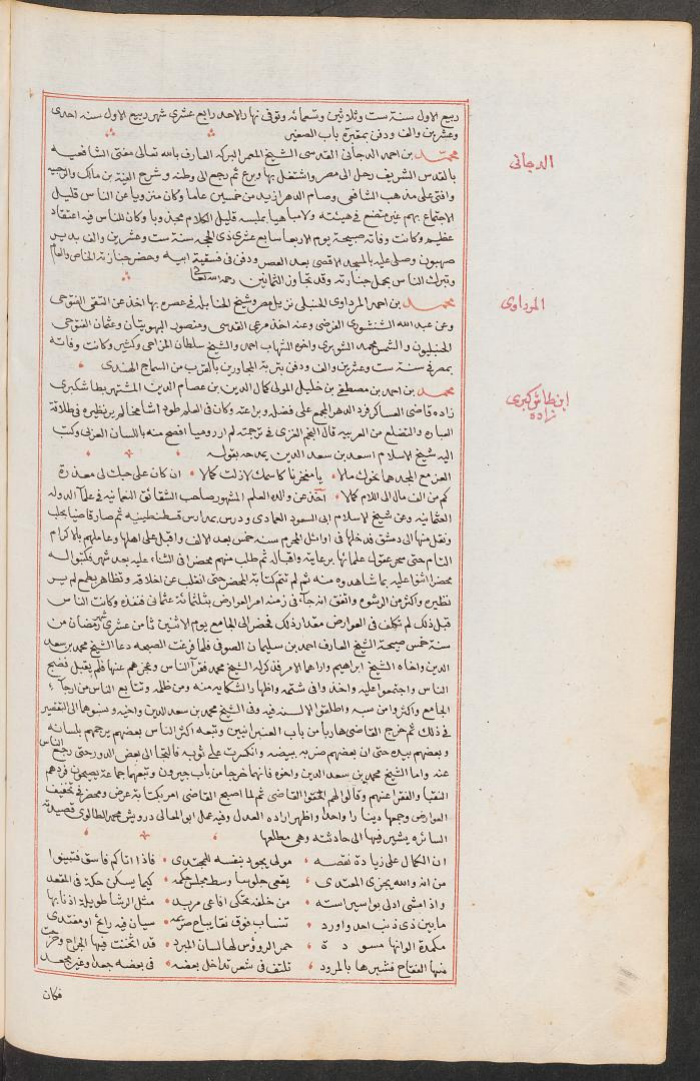 ربيع الاول سنة ست وثلاثين وتسمائه وتوفى نهار الاحد رابع عشرى شهر ربيع الاول سنه احدى
وعشرين والف ودفن بمقبرة باب الصغير
محمد بن احمد الدجانى القدسى الشيخ المعمر البركه العارف بالله تعالى مفتى الشافعيه
الدجانى
بالقدس الشريف رحل الى مصر واشتغل بها وبرع ثم رجع الى وطنه وشرح الفية بن مالك والرحبيه
وافتى على مذهب الشافعى وصام الدهر ازيد من خمسين عاما وكان منزويا عن الناس قليل
الاجتماع بهم غير متصنع فى هيئته ولا مباهيا بملبسه قليل الكلام مجذوبا وكان للناس فيه اعتقاد
عظيم وكانت وفاته صبيحة يوم الاربعا سابع عشرى ذى الحجه سنة ست وعشرين والف بدير
صهيون وصلى عليه بالمسجد الاقصى بعد العصر ودفن فى فسقية ابيه وحضر جنازته الخاص والعام
وتبرك الناس بحمل جنازته وقد تجاوز الثمانين رحمه الله تعالى
محمد بن احمد المرداوى الحنبلى نزيل مصر وشيخ الحنابله فى عصره بها اخذ عن التقى الفتوحى
المرداوى
وعن عبد الله الشنشورى الفرضى وعنه اخذ مرعى القدسى ومنصور البهوتيان وعثمان الفتوحى
الحنبليون والشمس محمد الشوبرى واخوه الشهاب احمد والشيخ سلطان المزاحى وكثير وكانت وفاته
بمصر فى سنة ست وعشرين والف ودفن بتربة المجاورين بالقرب من السراج الهندى
محمد بن احمد بن مصطفى بن خليل المولى كمال الدين بن عصام الدين المشتهر بطاشكبرى
ابن طاشكبرى
زاده
زاده قاضى العساكر فرد الدهر المجمع على فضله وبراعته وكان فى العلم طودا شامخا لم ير نظيره فى طلاقة
العباره والتضلع من العربيه قال النجم الغزى فى ترجمته لم ار روميا افصح منه باللسان العربى وكتب
اليه شيخ الاسلام اسعد بن سعد الدين يمدحه بقوله
العز مع المجد هما نحوك مالا يا مفخرنا كاسمك لا زلت كمالا ان كان على حبك لى معذرة
كم من الف مال الى اللام كمالا اخذ عن والده العلم المشهور صاحب الشقائق النعمانيه فى علماء الدوله
العثمانيه وعن شيخ الاسلام ابى السعود العمادى ودرس بمدارس قسطنطينيه ثم صار قاضيا بحلب
ونقل منها الى دمشق فدخلها فى اوائل المحرم سنه خمس بعد الالف واقبل على اهلها وعاملهم بالاكرام
التام حتى سحر عقول علمائها برعايته واقباله ثم طلب منهم محضرا فى الثناء عليه بعد شهر فكتبوا له
محضرا اثنوا عليه بما شاهدوه منه ثم لم تتم كتابة المحضر حتى انقلب عن اخلاقه وتظاهر بطمع لم ير
نظيره واكثر من الرشوه واتفق انه جاء فى زمنه امر العوارض بثلثمائة عثمانى فنفذه وكانت الناس
قبل ذلك لم تكلف فى العوارض مقدار ذلك فحضر الى الجامع يوم الاثنين ثامن عشرى شهر رمضان من
سنة خمس صبيحة الشيخ العارف احمد بن سليمان الصوفى فلما فرغت الصبحه دعا الشيخ محمد بن سعد
الدين واخاه الشيخ ابراهيم واراهما الامر فذكر له الشيخ محمد فقر الناس وعجزهم عنها فلم يقبل فضج
الناس واجتمعوا عليه واخذوا فى شتمه واظهار الشكايه منه ومن ظلمه وتتابع الناس من ارجاء
الجامع واكثروا من سبه واطلقوا الالسنه فيه وفى الشيخ محمد بن سعد الدين واخيه ونسبوهما الى التقصير
فى ذلك ثم خرج القاضى هاربا من باب العنبرانيين وتبعه اكثر الناس بعضهم يرجمهم بلسانه
وبعضهم بيده حتى ان بعضهم ضربه ببيضه وانكسرت على ثوبه فالتجا الى بعض الدور حتى رجع الناس
عنه واما الشيخ محمد بن سعد الدين واخوه فانهما خرجا من باب جيرون وتبعهما جماعة يصيحون فردهم
النقبا والفقرا عنهم وقالوا لهم القاضى ثم لما اصبح القاضى امر بكتابة عرض ومحضر فى تخفيف
العوارض وجمعها دينارا واحدا واظهر اراده العدل وفيه عمل ابى المعالى درويش محمد الطالوى قصيدته
السائره يشير فيها الى حادثته وهى مطلعها
ان الكمال على زيادة نقصه مولى يجود بنفسه للمجتدى فاذا اتاكم فاسق فتبينوا
من افه والله يجزى المعتدى يقعى جلوسا وسط مجلس حكمه كيما يسكن حكة فى المقعد
واذا مشى ادلى بواسير استه من خلفه تحكى افاعى مربد مثل الرشا طويلة اذنابها
ما بين ذى ذنب احد وادرد تنساب فوق نقا يباح صريمه سيان فيه رائح او مغتدى
مكمدة الوانها مسودة حمر الرؤوس لها لسان المبرد قد اثخنت فيها الجراح وخرت
منها الفتاح فشبرها بالمرود تلتف فى شعر تداخل بعضه فى بعضه جعدا وغير مجعد
فكان